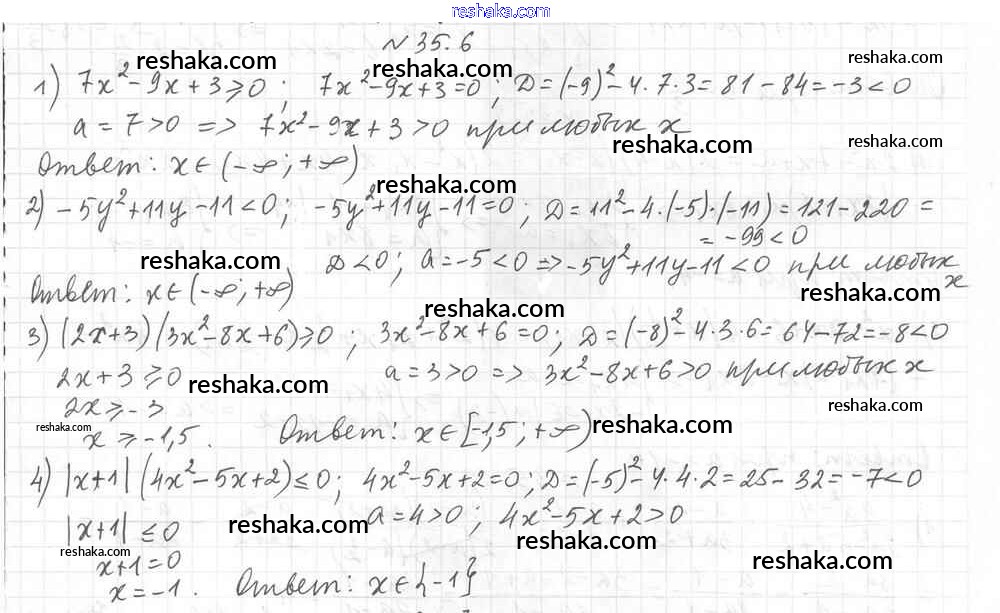 reshaka.com
N 35.6
reshaka.com reshaka.com reshaka.com
1) 7x²-9x+3≥0; 7x²-9x+3=0; D=(-9)²-4·7·3=81-84=-3<0
a=7>0 => 7x²-9x+3>0 при любых x
reshaka.com reshaka.com
Ответ: x∈(-∞;+∞)
reshaka.com
2) -5y²+11y-11<0; -5y²+11y-11=0; D=11²-4·(-5)·(-11)=121-220=
=-99<0
reshaka.com D<0; a=-5<0 => -5y²+11y-11<0 при любых
x
Ответ: x∈(-∞;+∞) reshaka.com
reshaka.com
3) (2x+3)(3x²-8x+6)≥0; 3x²-8x+6=0; D=(-8)²-4·3·6=64-72=-8<0
2x+3≥0 reshaka.com a=3>0 => 3x²-8x+6>0 при любых x
2x≥-3 reshaka.com
reshaka.com x≥-1,5. Ответ: x∈[-1,5;+∞) reshaka.com
4) |x+1|(4x²-5x+2)≤0; 4x²-5x+2=0; D=(-5)²-4·4·2=25-32=-7<0
|x+1|≤0 reshaka.com a=4>0; 4x²-5x+2>0
reshaka.com reshaka.com
x+1=0 reshaka.com
x=-1. Ответ: x∈{-1}